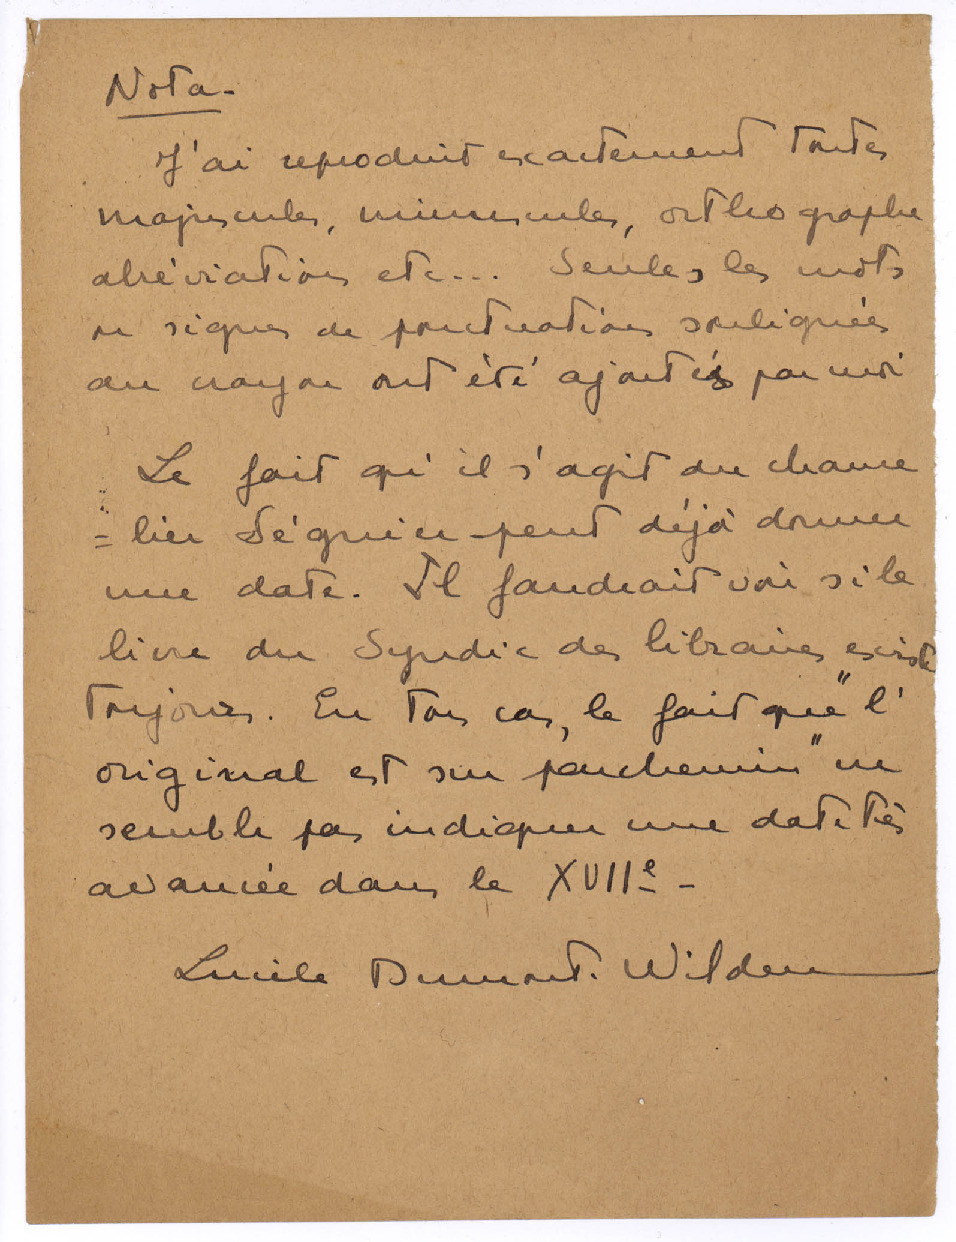 Nota -
J'ai reproduit exactement toutes
majuscules, minuscules, orthographe
abréviations etc... Seules les mots
ou signes de ponctuation soulignés
au crayon ont été ajoutés par moi
Le fait qu'il s'agit du chance
= lier Séguier peut déjà donner
une date. Il faudrait voir si le
livre du Syndic des libraires existe
toujours. En tous cas, le fait que "l'
original est sur parchemin" ne
semble pas indiquer une date très
avancée dans le XVIIe -
Lucile Dumont-Wilden